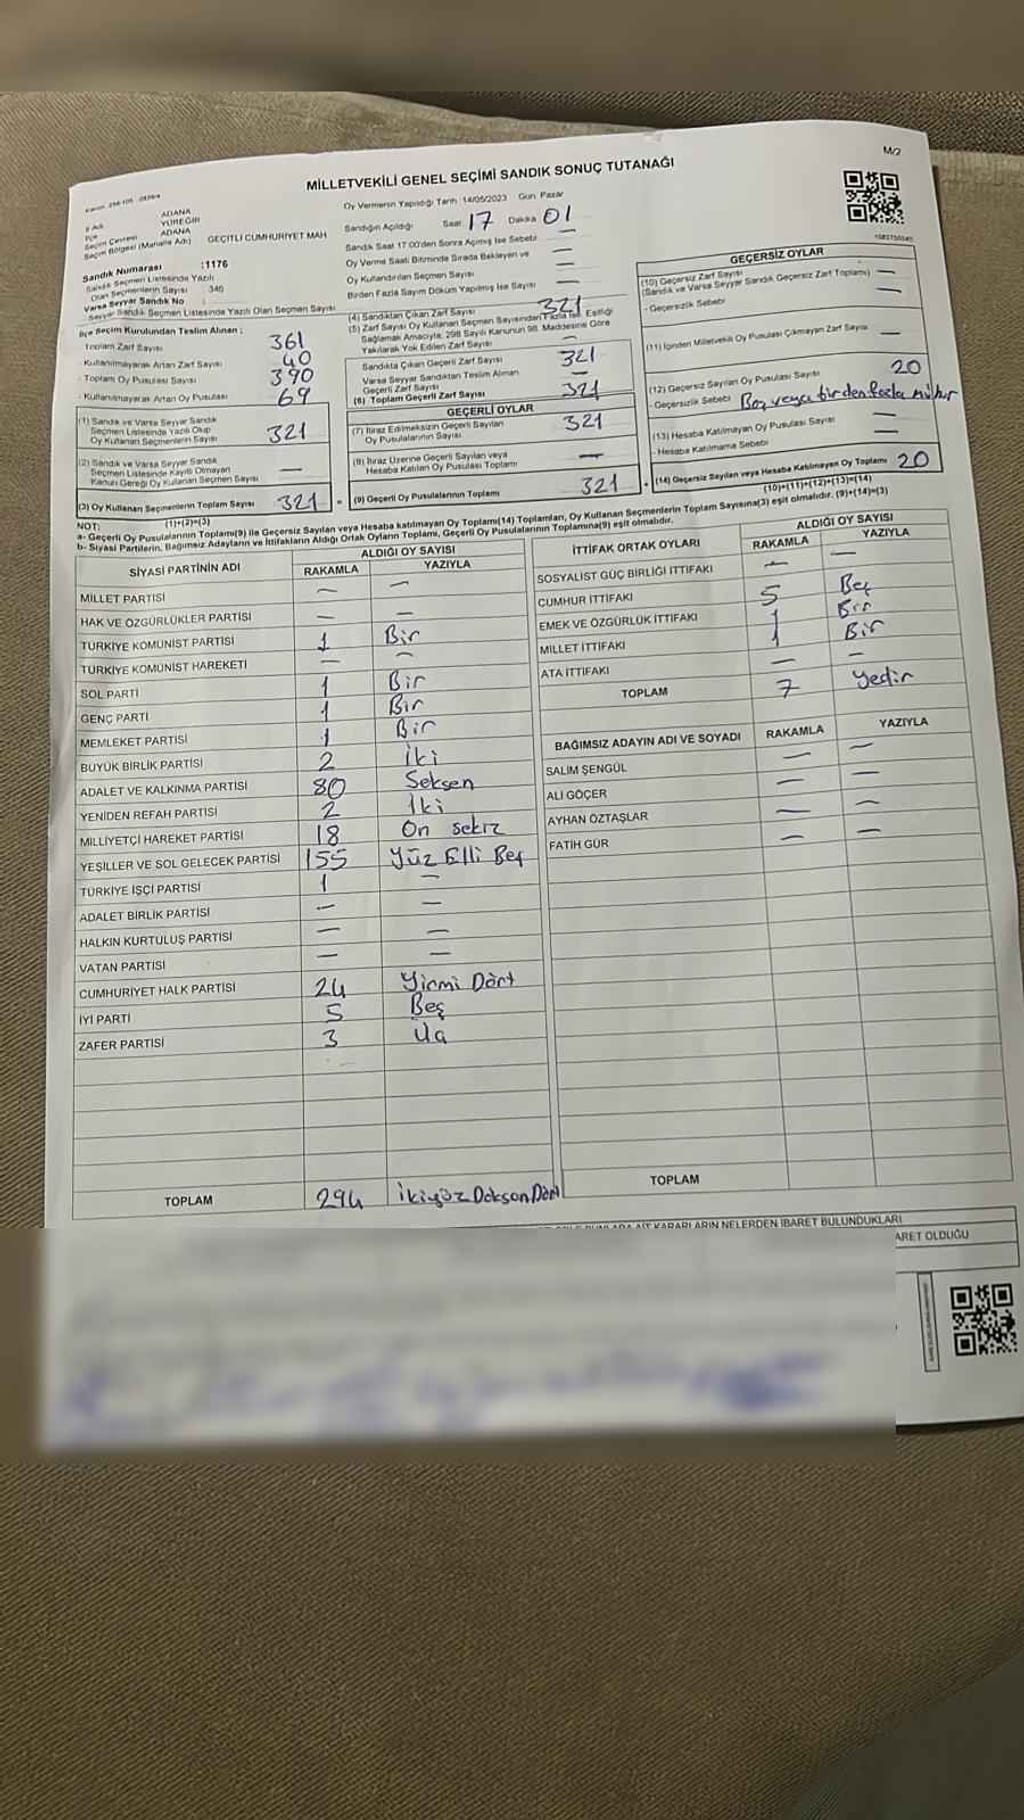 M/2
MİLLETVEKİLİ GENEL SEÇİMİ SANDIK SONUÇ TUTANAĞI
ADANA
YÜREĞİR
ADANA
Seçim Bölgesi (Mahalle Adı) GEÇİTLİ CUMHURİYET MAH
Sandık Numarası :1176
Sandık Seçmen Listesinde Yazılı
Olan Seçmenlerin Sayısı 346
Varsa Seyyar Sandık No
Seyyar Sandık Seçmen Listesinde Yazılı Olan Seçmen Sayısı
Oy Vermenin Yapıldığı Tarih 14/05/2023 Gün Pazar
Sandığın Açıldığı Saat 17 Dakika 01
Sandık Saat 17.00'den Sonra Açılmış İse Sebebi —
Oy Verme Saati Bitiminde Sırada Bekleyen ve
Oy Kullandırılan Seçmen Sayısı —
Birden Fazla Sayım Döküm Yapılmış İse Sayısı —
İlçe Seçim Kurulundan Teslim Alınan :
Toplam Zarf Sayısı 361
Kullanılmayarak Artan Zarf Sayısı 40
Toplam Oy Pusulası Sayısı 390
- Kullanılmayarak Artan Oy Pusulası 69
(1) Sandık ve Varsa Seyyar Sandık
Seçmen Listesinde Yazılı Olup
Oy Kullanan Seçmenlerin Sayısı 321
(2) Sandık ve Varsa Seyyar Sandık
Seçmen Listesinde Kayıtlı Olmayan
Kanun Gereği Oy Kullanan Seçmen Sayısı —
(3) Oy Kullanan Seçmenlerin Toplam Sayısı 321
(1)+(2)=(3)
(4) Sandıktan Çıkan Zarf Sayısı 321
(5) Zarf Sayısı Oy Kullanan Seçmen Sayısından Fazla İse, Eşitliği
Sağlamak Amacıyla, 298 Sayılı Kanunun 98. Maddesine Göre
Yakılarak Yok Edilen Zarf Sayısı —
Sandıkta Çıkan Geçerli Zarf Sayısı 321
Varsa Seyyar Sandıktan Teslim Alınan
Geçerli Zarf Sayısı —
(6) Toplam Geçerli Zarf Sayısı 321
GEÇERLİ OYLAR
(7) İtiraz Edilmeksizin Geçerli Sayılan
Oy Pusulalarının Sayısı 321
(8) İtiraz Üzerine Geçerli Sayılan veya
Hesaba Katılan Oy Pusulası Toplamı —
= (9) Geçerli Oy Pusulalarının Toplamı 321
GEÇERSİZ OYLAR
(10) Geçersiz Zarf Sayısı —
(Sandık ve Varsa Seyyar Sandık Geçersiz Zarf Toplamı)
- Geçersizlik Sebebi —
(11) İçinden Milletvekili Oy Pusulası Çıkmayan Zarf Sayısı —
(12) Geçersiz Sayılan Oy Pusulası Sayısı 20
- Geçersizlik Sebebi Boş veya birden fazla mühür
(13) Hesaba Katılmayan Oy Pusulası Sayısı —
- Hesaba Katılmama Sebebi —
+ (14) Geçersiz Sayılan veya Hesaba Katılmayan Oy Toplamı 20
(10)+(11)+(12)+(13)=(14)
NOT:
a- Geçerli Oy Pusulalarının Toplamı(9) ile Geçersiz Sayılan veya Hesaba katılmayan Oy Toplamı(14) Toplamları, Oy Kullanan Seçmenlerin Toplam Sayısına(3) eşit olmalıdır. (9)+(14)=(3)
b- Siyasi Partilerin, Bağımsız Adayların ve İttifakların Aldığı Ortak Oyların Toplamı, Geçerli Oy Pusulalarının Toplamına(9) eşit olmalıdır.
SİYASİ PARTİNİN ADI ALDIĞI OY SAYISI
RAKAMLA YAZIYLA
MİLLET PARTİSİ — —
HAK VE ÖZGÜRLÜKLER PARTİSİ — —
TÜRKİYE KOMÜNİST PARTİSİ 1 Bir
TÜRKİYE KOMÜNİST HAREKETİ — —
SOL PARTİ 1 Bir
GENÇ PARTİ 1 Bir
MEMLEKET PARTİSİ 1 Bir
BÜYÜK BİRLİK PARTİSİ 2 İki
ADALET VE KALKINMA PARTİSİ 80 Seksen
YENİDEN REFAH PARTİSİ 2 İki
MİLLİYETÇİ HAREKET PARTİSİ 18 On sekiz
YEŞİLLER VE SOL GELECEK PARTİSİ 155 Yüz Elli Beş
TÜRKİYE İŞÇİ PARTİSİ 1 —
ADALET BİRLİK PARTİSİ — —
HALKIN KURTULUŞ PARTİSİ — —
VATAN PARTİSİ — —
CUMHURİYET HALK PARTİSİ 24 Yirmi Dört
İYİ PARTİ 5 Beş
ZAFER PARTİSİ 3 Üç
TOPLAM 294 İkiyüz Doksan Dört
İTTİFAK ORTAK OYLARI ALDIĞI OY SAYISI
RAKAMLA YAZIYLA
SOSYALİST GÜÇ BİRLİĞİ İTTİFAKI — —
CUMHUR İTTİFAKI 5 Beş
EMEK VE ÖZGÜRLÜK İTTİFAKI 1 Bir
MİLLET İTTİFAKI 1 Bir
ATA İTTİFAKI — —
TOPLAM 7 Yedir
BAĞIMSIZ ADAYIN ADI VE SOYADI RAKAMLA YAZIYLA
SALİM ŞENGÜL — —
ALİ GÖÇER — —
AYHAN ÖZTAŞLAR — —
FATİH GÜR — —
TOPLAM
AİT KARARLARIN NELERDEN İBARET BULUNDUKLARI
ARET OLDUĞU